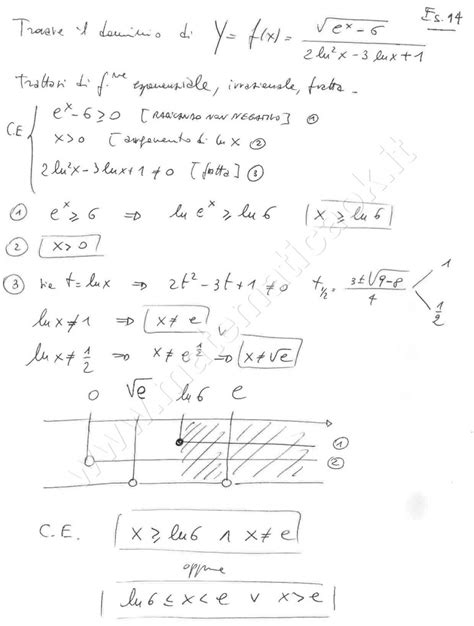 Es. 14
Trovare il dominio di y = f(x) = √(e^x - 6) / (2 ln²x - 3 ln x + 1)
Trattasi di f.ne esponenziale, irrazionale, fratta.
C.E. { e^x - 6 ≥ 0 [RADICANDO NON NEGATIVO] ①
x > 0 [argomento di ln x ②
2 ln²x - 3 ln x + 1 ≠ 0 [fratta] ③
① e^x ≥ 6 ⇒ ln e^x ≥ ln 6 | x ≥ ln 6 |
② | x > 0 |
③ t = ln x ⇒ 2t² - 3t + 1 ≠ 0 t½ = (3 ± √(9 - 8)) / 4 < 1, 1/2
ln x ≠ 1 ⇒ | x ≠ e |
ln x ≠ 1/2 ⇒ x ≠ e^(1/2) ⇒ | x ≠ √e |
0 √e ln 6 e
①
②
C.E. | x ≥ ln 6 ∧ x ≠ e |
oppure
| ln 6 ≤ x < e ∨ x > e |
www.matematicaok.it